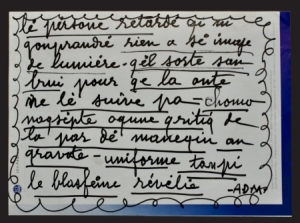 lé pérsone retardé qi ni
gonprandré rien a sé image
de lumière - qél sorte san
brui pour qe la onte
ne lé suive pa - chomo
nogsepte oqune gritiq de
la par dé maneqin an
gravate - uniforme tanpi
le blasfème révélié
-ADM-